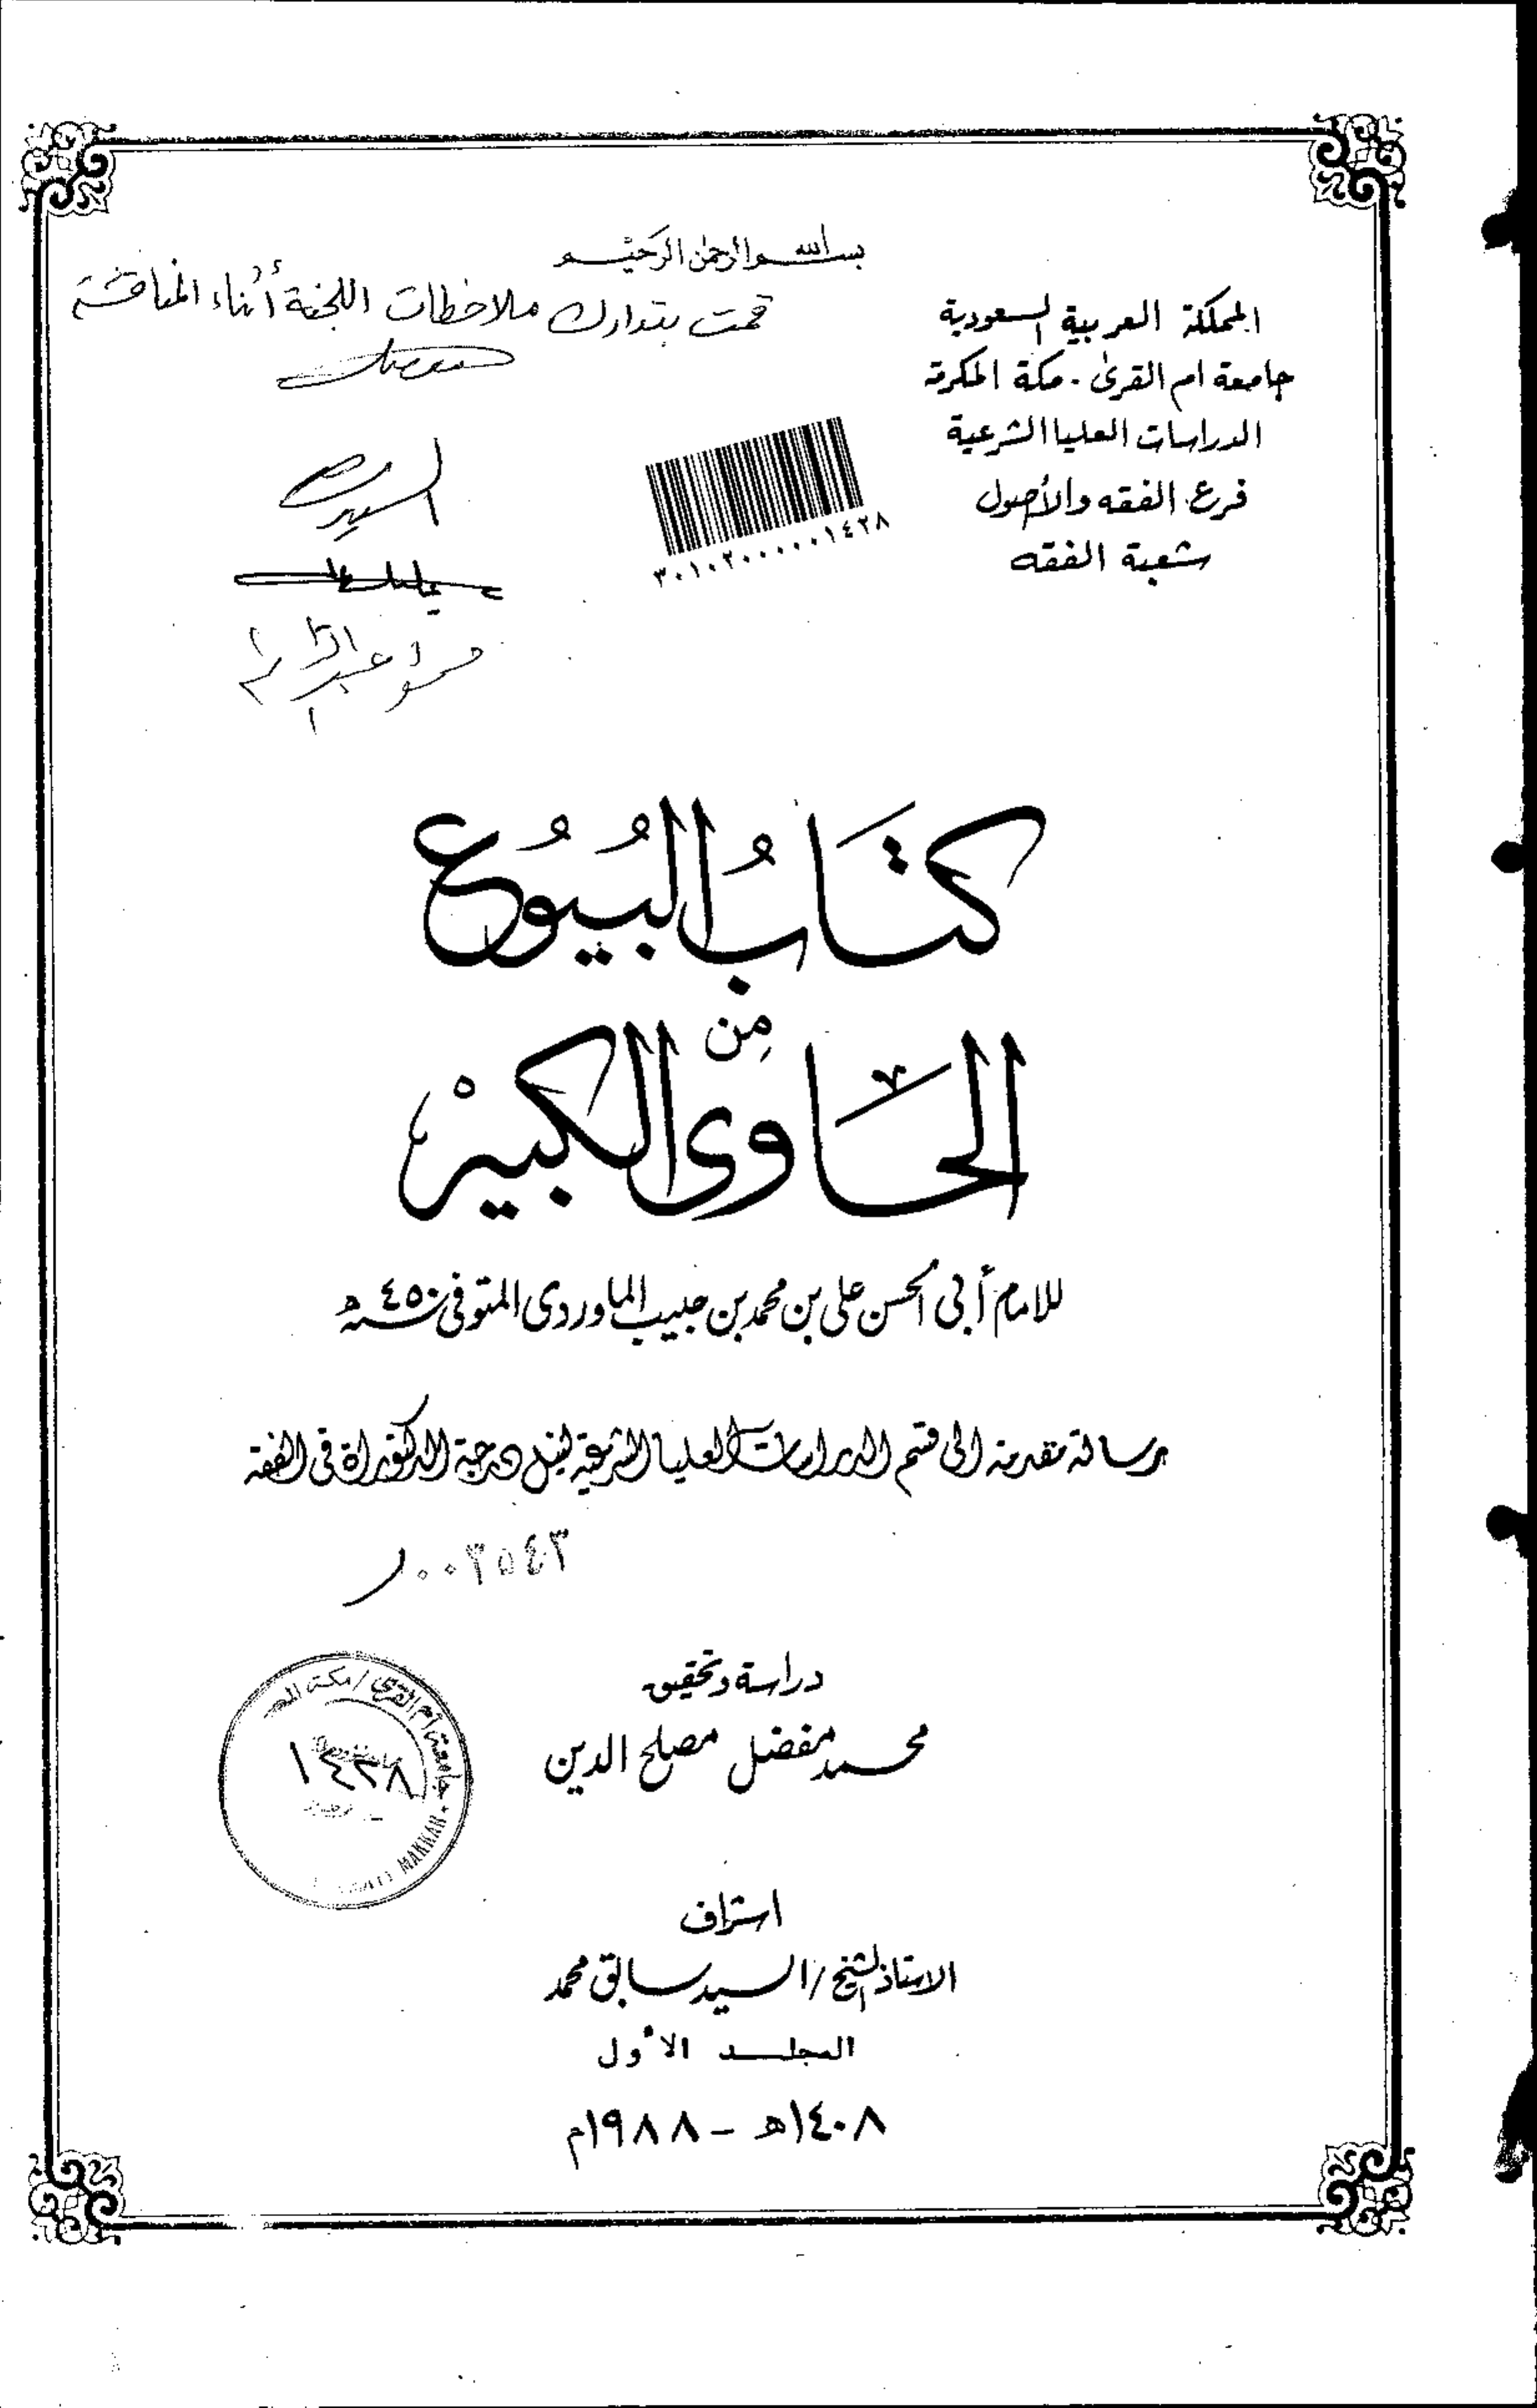 بسم الله الرحمن الرحيم
قمت بتدارك ملاحظات اللجنة أثناء المناقشة
المملكة العربية السعودية
جامعة ام القرى - مكة المكرمة
الدراسات العليا الشرعية
فرع الفقه والأصول
شعبة الفقه
٣٠١٠٢٠٠٠٠٠١٤٣٨
كتَابُ البُيُوُع
مِن
الحَاوى الكبيرْ
للامام أبى الحسن على بن محمد بن حبيب الماوردى المتوفى سنة ٤٥٠ ه
رسالة مقدمة الى قسم الدراسات العليا الشرعية لنيل درجة الدكتوراة فى الفقه
٠٠٣٥٤٣
دراسة وتحقيق
محمد مفضل مصلح الدين
جامعة أم القرى / مكة
١٤٣٨
MAKKAH
اشراف
الاستاذ الشيخ / السيد سابق محمد
المجلد الأول
١٤٠٨ه - ١٩٨٨م